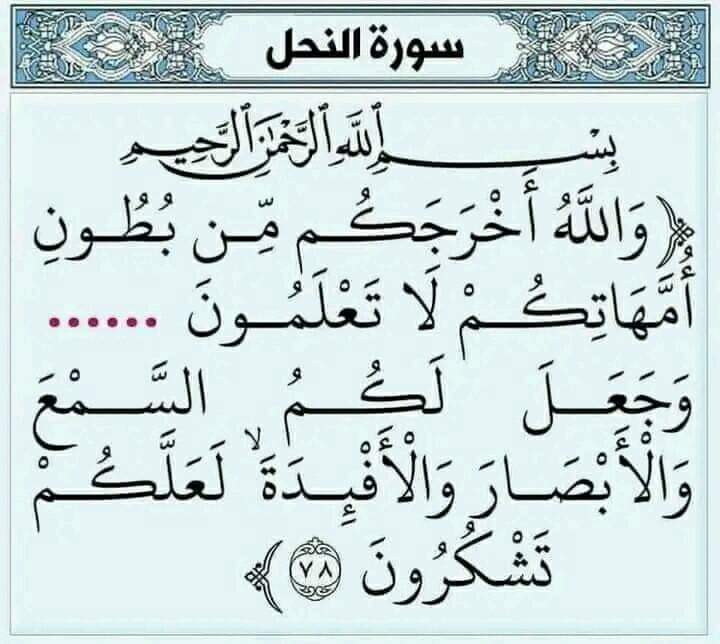 سورة النحل
بِسْمِ ٱللَّهِ ٱلرَّحْمَٰنِ ٱلرَّحِيمِ
﴿ وَاللَّهُ أَخْرَجَكُم مِّن بُطُونِ
أُمَّهَاتِكُمْ لَا تَعْلَمُونَ ......
وَجَعَلَ لَكُمُ السَّمْعَ
وَالْأَبْصَارَ وَالْأَفْئِدَةَ ۙ لَعَلَّكُمْ
تَشْكُرُونَ ٧٨ ﴾